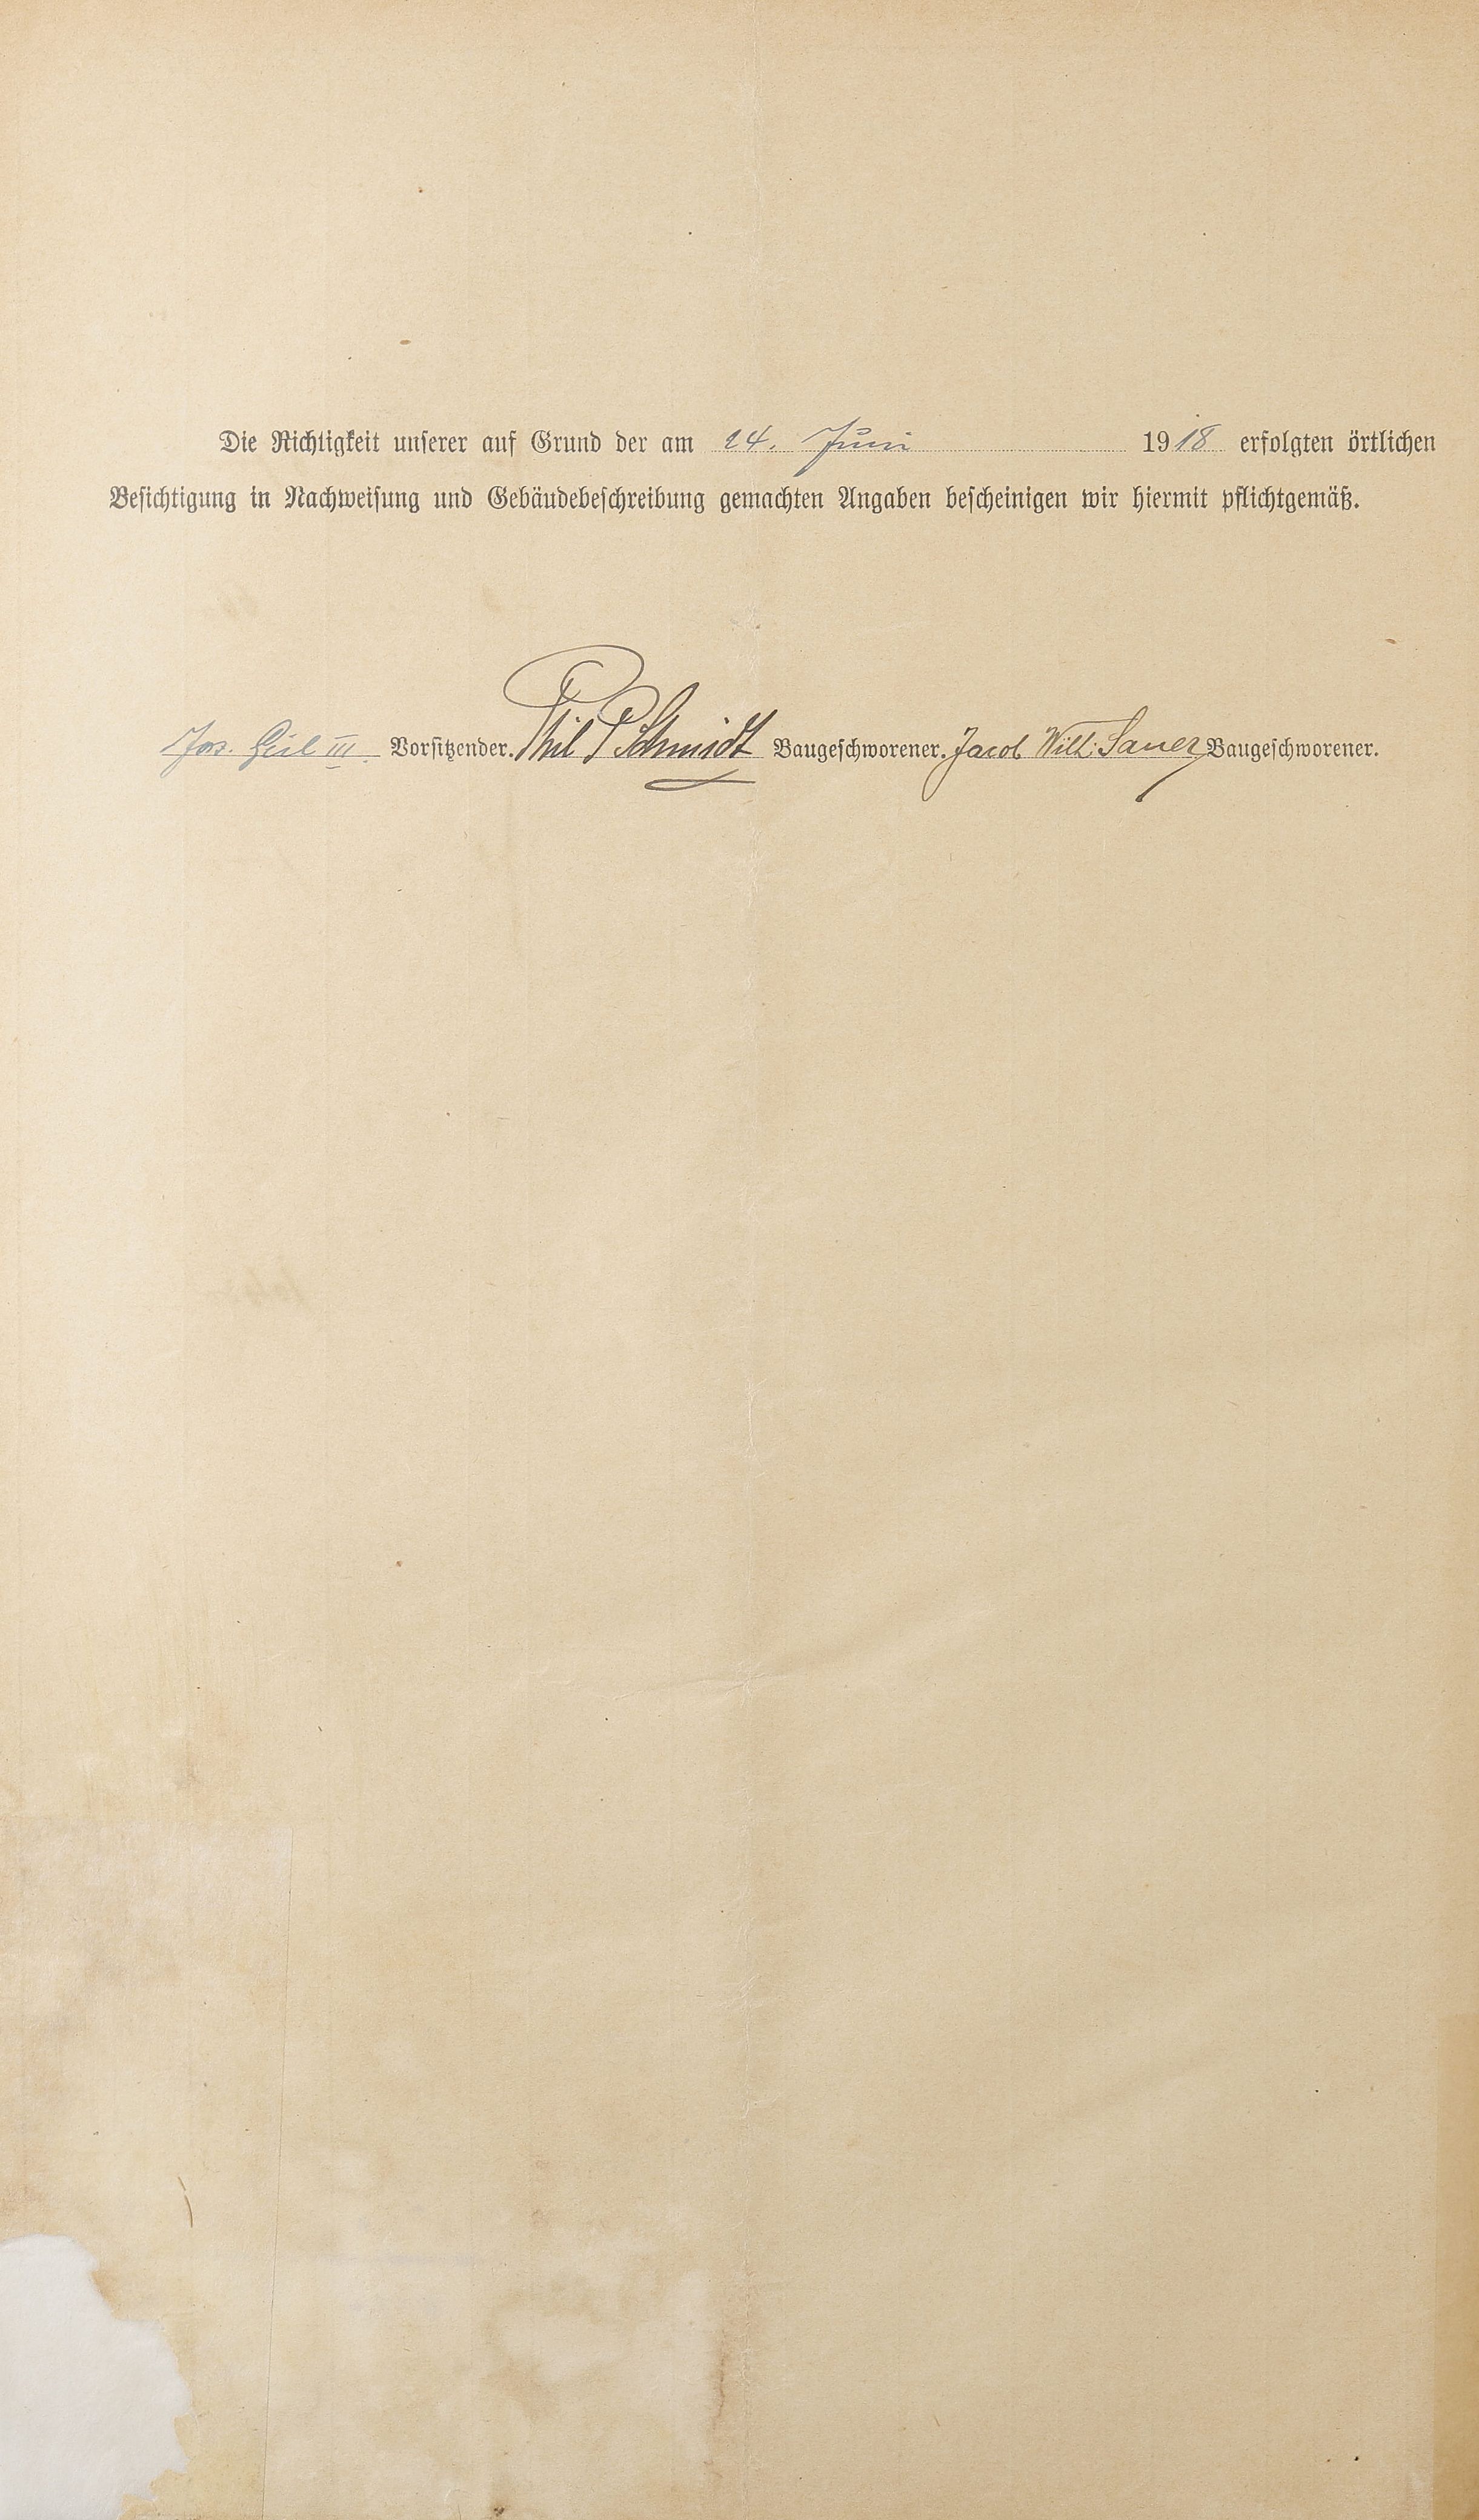 Die Richtigkeit unserer auf Grund der am 24. Juni 1918 erfolgten örtlichen
Besichtigung in Nachweisung und Gebäudebeschreibung gemachten Angaben bescheinigen wir hiermit pflichtgemäß.
Jos. Geil III. Vorsitzender. Phil P Schmidt Baugeschworener. Jacob Wilh: Sauer Baugeschworener.